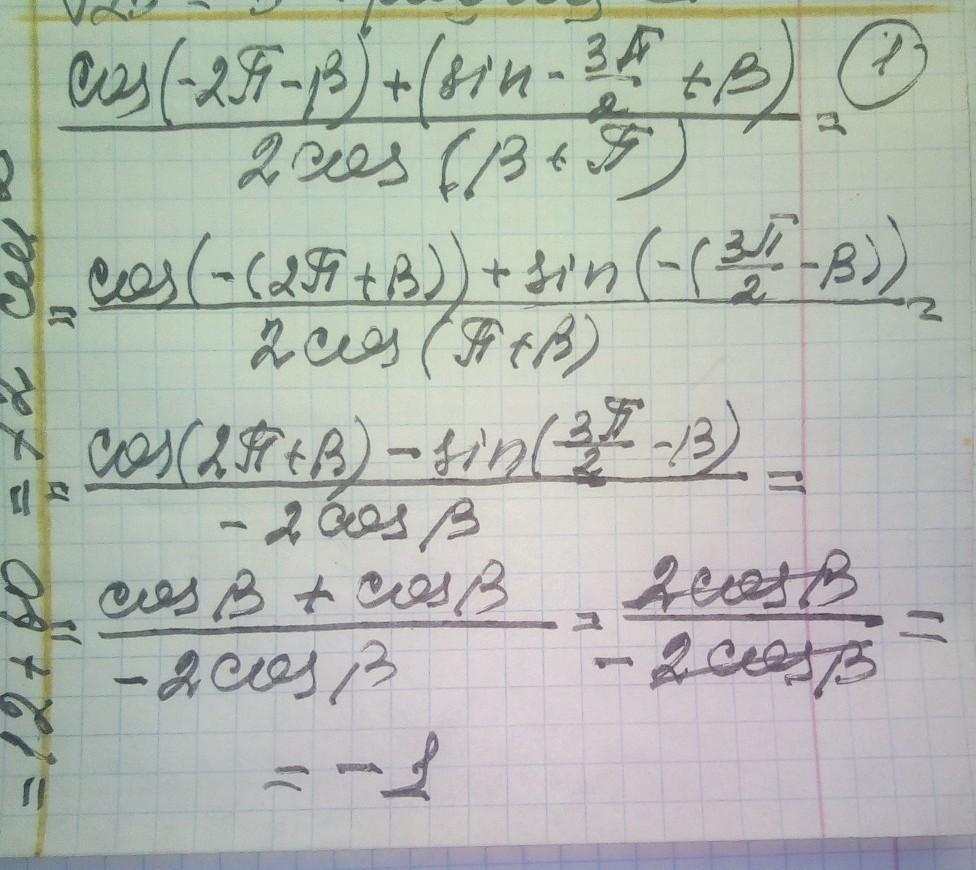 ①
cos(-2π-β)+(sin-3π/2+β)
2cos(β+π) =
= cos(-(2π+β))+sin(-(3π/2-β))
2cos(π+β) =
= cos(2π+β)-sin(3π/2-β)
-2cosβ =
= cosβ+cosβ / -2cosβ = 2cosβ / -2cosβ =
= -1